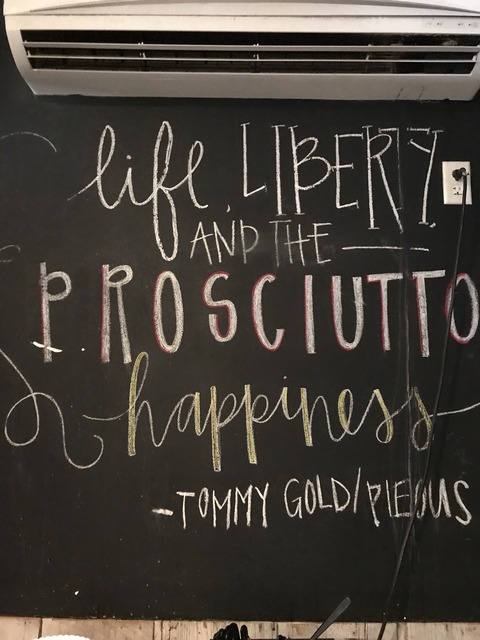 life, LIBERTY,
AND THE
PROSCIUTTO
happiness
-TOMMY GOLD/PIEOUS